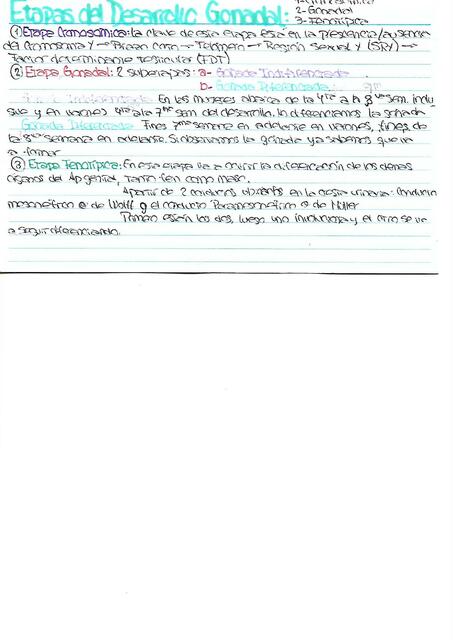 Etapas del Desarrollo Gonadal:
2-Gonadal
3-Fenotípica
① Etapa Cromosómica: la clave de esta etapa está en la presencia/ausencia
del Cromosoma Y → Brazo corto → Telómero → Región Sexual Y (SRY) →
Factor determinante testicular (FDT)
② Etapa Gonadal: 2 subetapas: a- Gónada Indiferenciada
b- Gónada Diferenciada
Gónada Indiferenciada: En las mujeres abarca de la 4ta a la 8va sem. inclu
sive y en varones 4ta a la 7ma sem del desarrollo. No diferenciamos la gónada
Gónada Diferenciada: Fines 7ma semana en adelante en varones, fines de
la 8va semana en adelante. Si observamos la gónada ya sabemos que va
a formar
③ Etapa Fenotípica: En esta etapa va a ocurrir la diferenciación de los demás
órganos del Ap genital, tanto fem como masc.
A partir de 2 conductos ubicados en la cresta urinaria: Conducto
mesonéfrico o de Wolff y el conducto Paramesonéfrico o de Müller
Primero están los dos, luego uno involuciona y el otro se va
a seguir diferenciando.